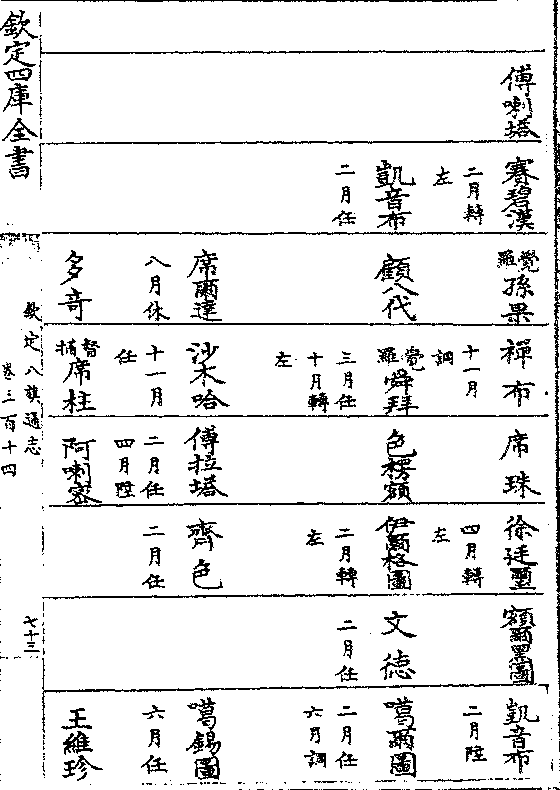 傅喇塔
賽碧漢 二月轉左
凱音布 二月任
覺羅孫果
顧八代
席爾達 八月休
多奇
禪布 十一月調
覺羅舜拜 三月任十月轉左
沙木哈 十一月任
督捕席柱
席珠
色楞額
傅拉塔 二月任四月陞
阿喇密
徐廷璽 四月轉左
伊爾格圖 二月轉左
齊色 二月任
額爾黑圖
文德 二月任
凱音布 二月陞
噶爾圖 二月任六月調
噶錫圖 六月任
王維珍
欽定四庫全書
欽定八旗通志
卷三百十四
七十三